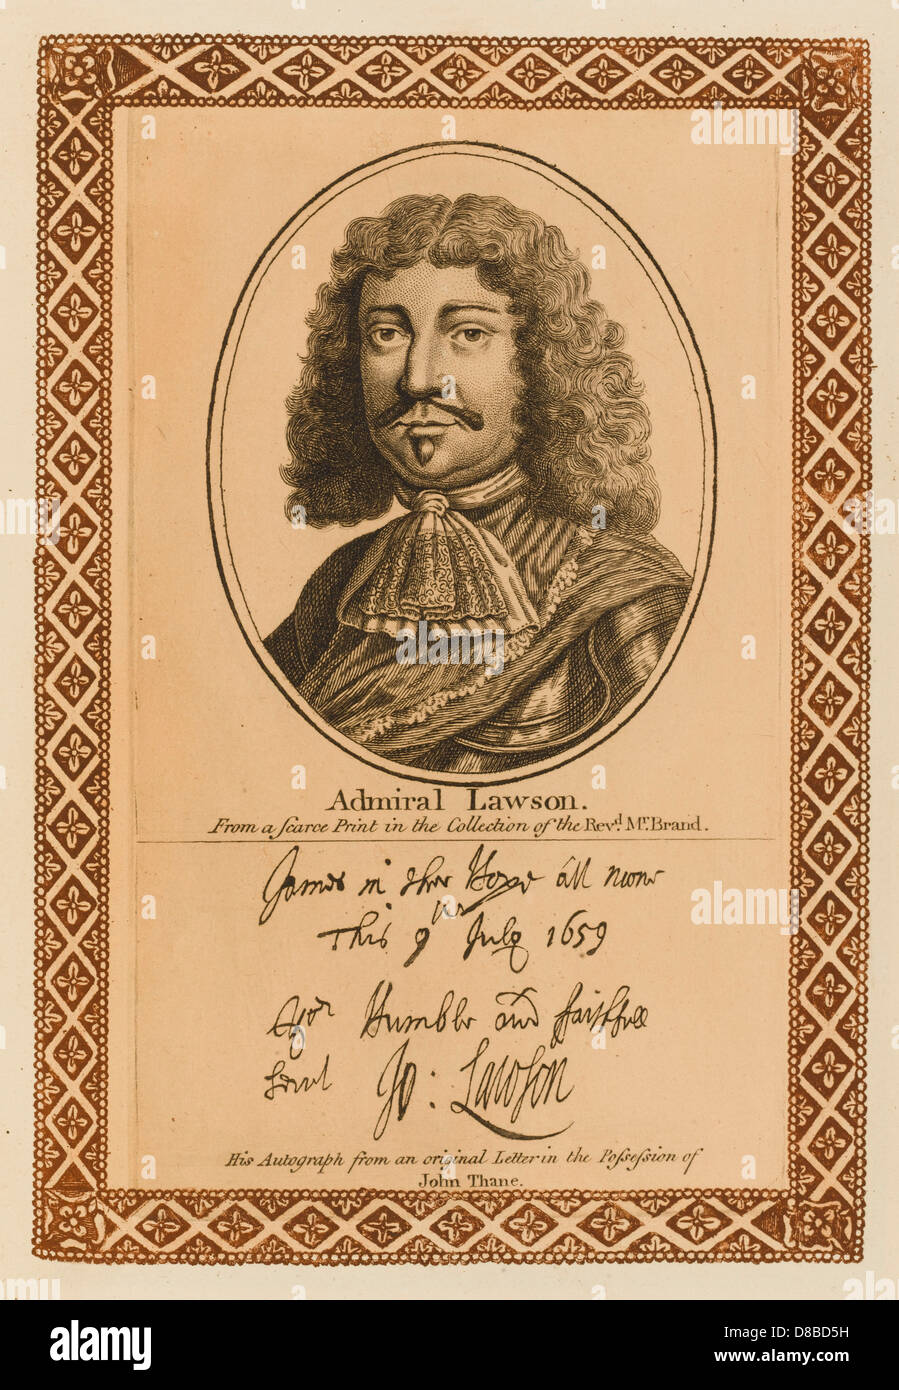 Admiral Lawson.
From a ſcarce Print in the Collection of the Revᵈ. Mʳ. Brand.
James in the Hope att none
This 9ᵗʰ July 1659
Yoʳ Humble and faithfull
Servt Jo: Lawſon
His Autograph from an original Letter in the Poſseſsion of
John Thane.
a alamy stock photo
alamy
Image ID: D8BD5H
www.alamy.com